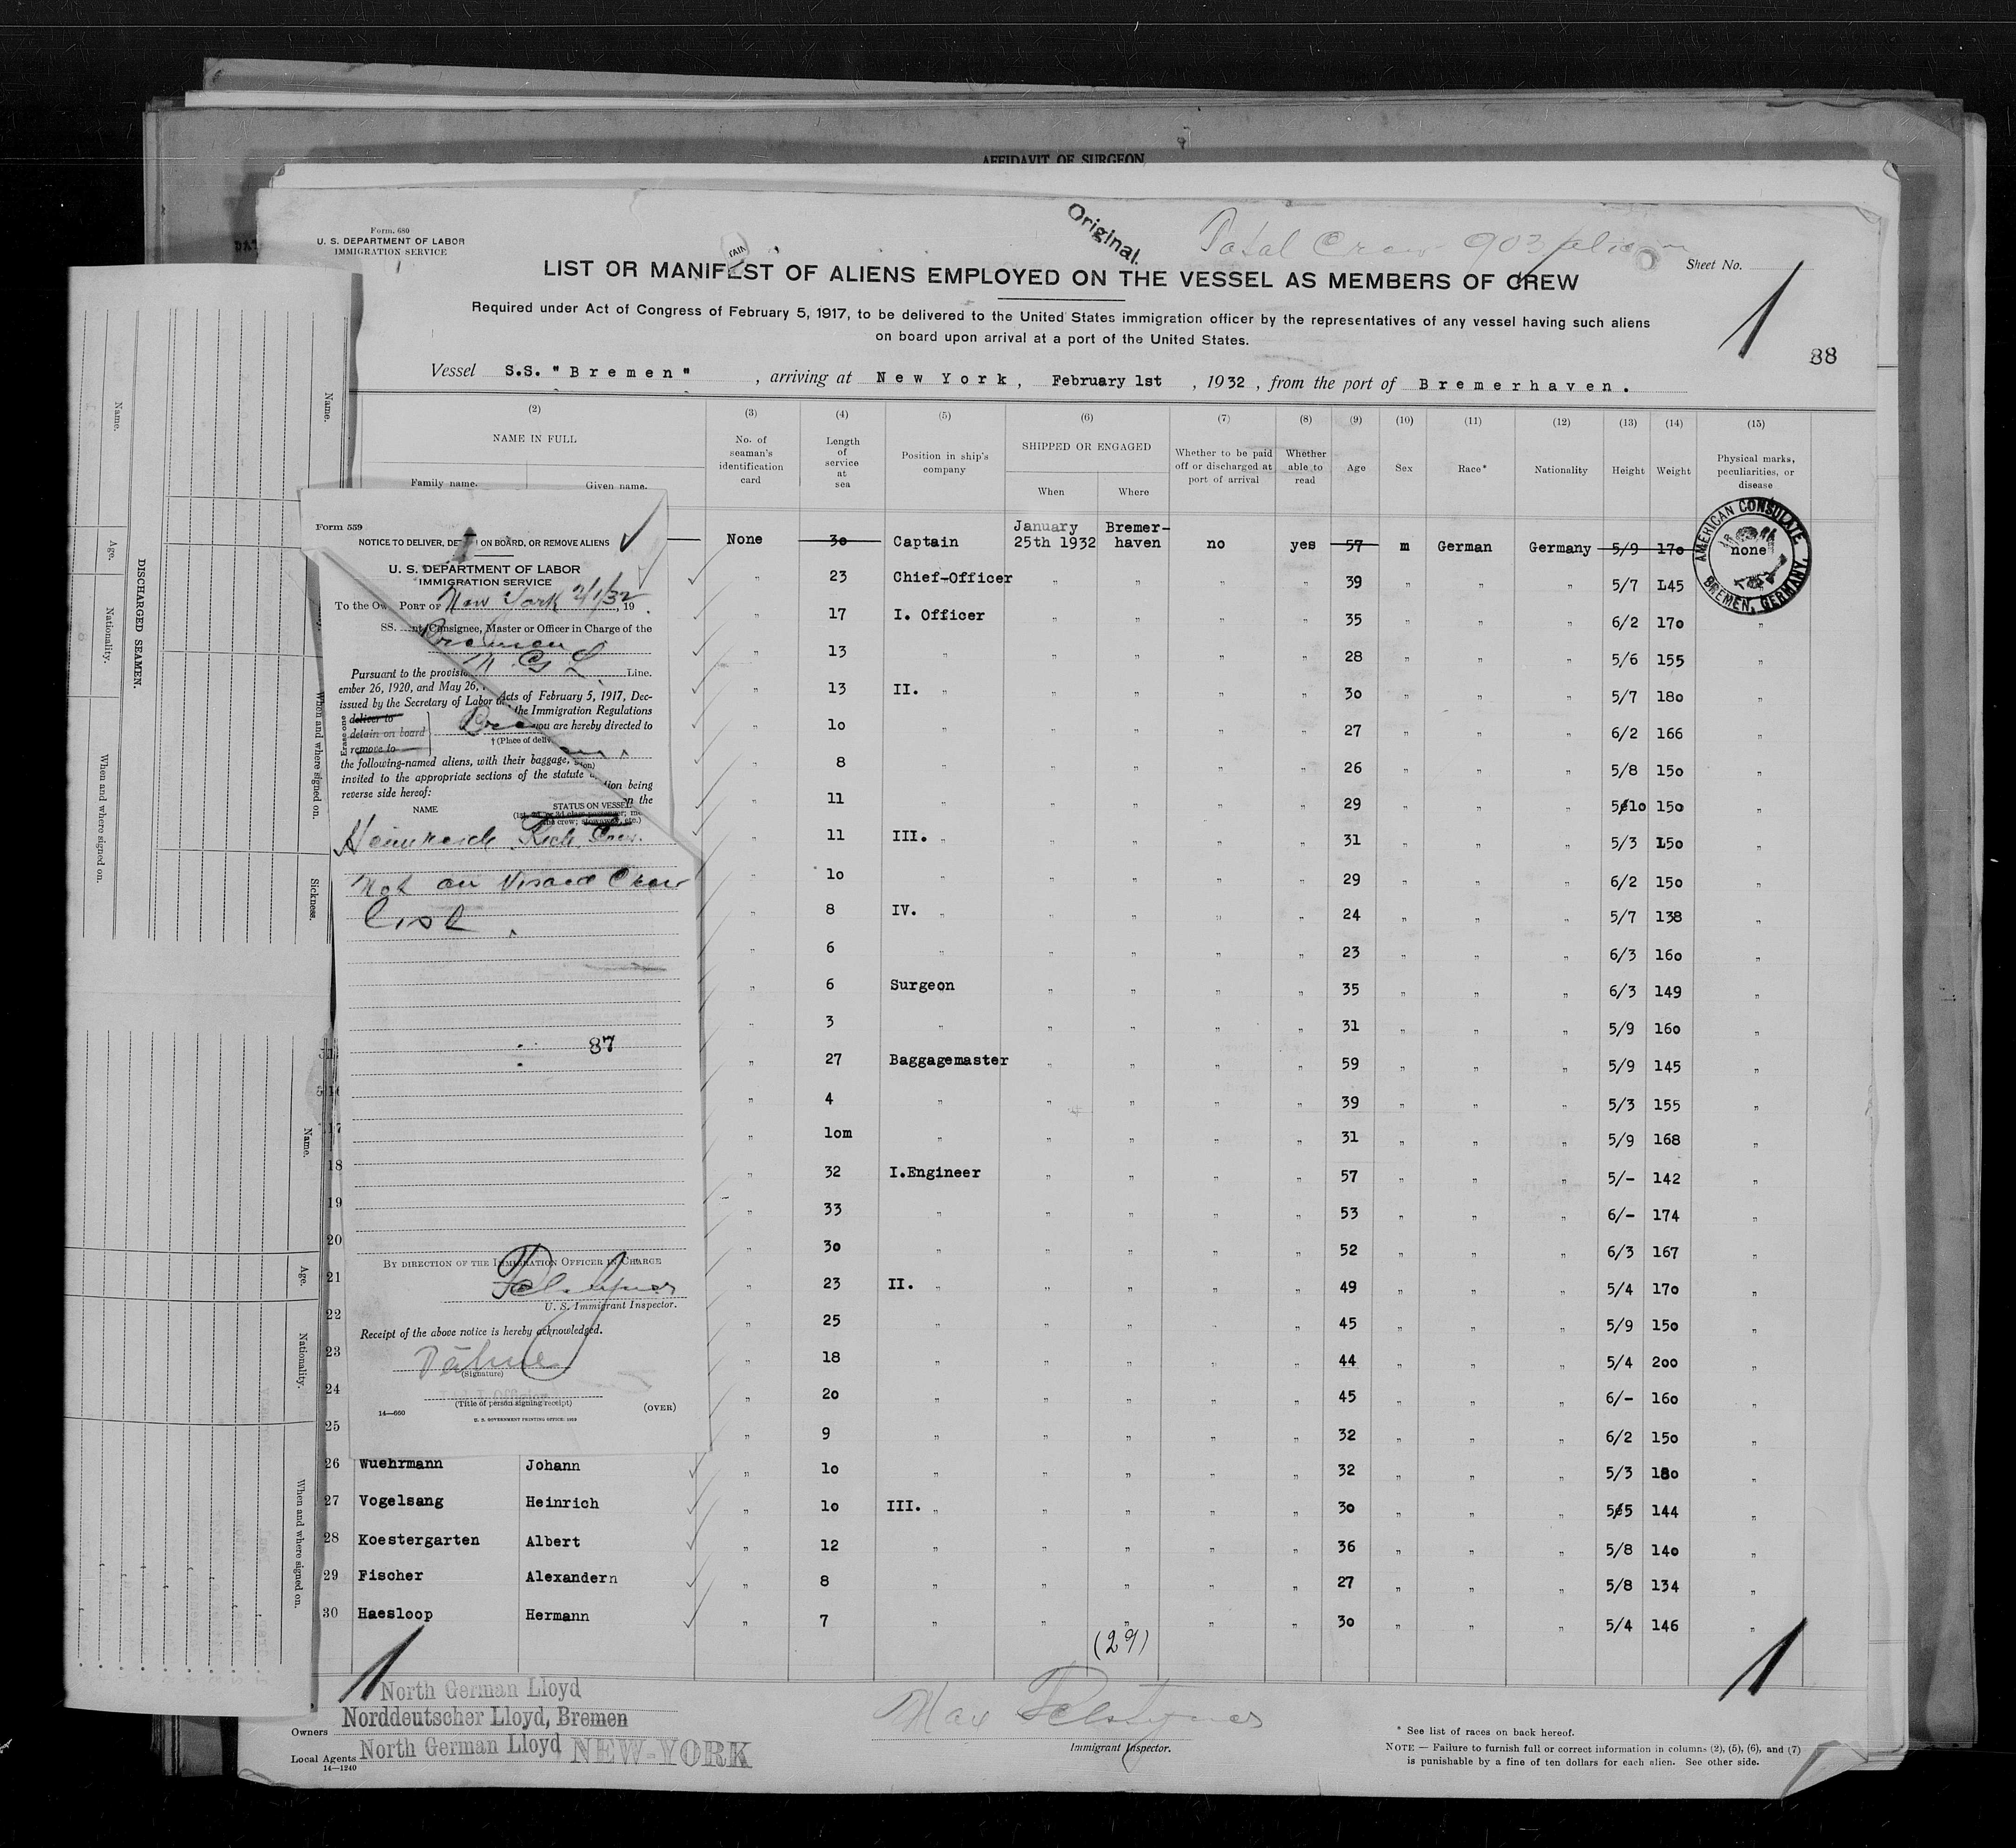 AFFIDAVIT OF SURGEON
Form. 680
U. S. DEPARTMENT OF LABOR
IMMIGRATION SERVICE
Original.
Total Crew 903
Sheet No.
1
LIST OR MANIFEST OF ALIENS EMPLOYED ON THE VESSEL AS MEMBERS OF CREW
Required under Act of Congress of February 5, 1917, to be delivered to the United States immigration officer by the representatives of any vessel having such aliens
on board upon arrival at a port of the United States.
88
Vessel S.S. "Bremen" , arriving at New York, February 1st , 1932 , from the port of Bremerhaven.
(2) (3) (4) (5) (6) (7) (8) (9) (10) (11) (12) (13) (14) (15)
NAME IN FULL
Family name. Given name.
No. of seaman's identification card
Length of service at sea
Position in ship's company
SHIPPED OR ENGAGED
When Where
Whether to be paid off or discharged at port of arrival
Whether able to read
Age
Sex
Race*
Nationality
Height
Weight
Physical marks, peculiarities, or disease
AMERICAN CONSULATE
BREMEN, GERMANY.
None 30 Captain January 25th 1932 Bremer-haven no yes 57 m German Germany 5/9 170 none
" 23 Chief-Officer " " " " 39 " " " 5/7 L45
" 17 I. Officer " " " " 35 " " " 6/2 170 "
" 13 " " " " " 28 " " " 5/6 155 "
" 13 II. " " " " " 30 " " " 5/7 180 "
" 10 " " " " " 27 " " " 6/2 166 "
" 8 " " " " " 26 " " " 5/8 150 "
" 11 " " " " " 29 " " " 5/10 150 "
" 11 III. " " " " " 31 " " " 5/3 150 "
" 10 " " " " " 29 " " " 6/2 150 "
" 8 IV. " " " " " 24 " " " 5/7 138 "
" 6 " " " " " 23 " " " 6/3 160 "
" 6 Surgeon " " " " 35 " " " 6/3 149 "
" 3 " " " " " 31 " " " 5/9 160 "
" 27 Baggagemaster " " " " 59 " " " 5/9 145 "
" 4 " " " " " 39 " " " 5/3 155 "
17 " 10m " " " " " 31 " " " 5/9 168 "
18 " 32 I.Engineer " " " " 57 " " " 5/- 142 "
19 " 33 " " " " " 53 " " " 6/- 174 "
20 " 30 " " " " " 52 " " " 6/3 167 "
21 " 23 II. " " " " " 49 " " " 5/4 170 "
22 " 25 " " " " " 45 " " " 5/9 150 "
23 " 18 " " " " " 44 " " " 5/4 200 "
24 " 20 " " " " " 45 " " " 6/- 160 "
25 " 9 " " " " " 32 " " " 6/2 150 "
26 Wuehrmann Johann " 10 " " " " " 32 " " " 5/3 180 "
27 Vogelsang Heinrich " 10 III. " " " " " 30 " " " 5/5 144 "
28 Koestergarten Albert " 12 " " " " " 36 " " " 5/8 140 "
29 Fischer Alexandern " 8 " " " " " 27 " " " 5/8 134 "
30 Haesloop Hermann " 7 " " " " " 30 " " " 5/4 146 "
(29)
1
1
North German Lloyd
Owners Norddeutscher Lloyd, Bremen
Local Agents North German Lloyd NEW-YORK
14—1240
Max
Immigrant Inspector.
* See list of races on back hereof.
NOTE — Failure to furnish full or correct information in columns (2), (5), (6), and (7)
is punishable by a fine of ten dollars for each alien. See other side.
Form 559
NOTICE TO DELIVER, DET ON BOARD, OR REMOVE ALIENS
U. S. DEPARTMENT OF LABOR
IMMIGRATION SERVICE
PORT OF New York 2/1/32, 19
To the Ow
nt, Consignee, Master or Officer in Charge of the
SS. Bremen
N G L Line.
Pursuant to the provisio
Acts of February 5, 1917, Dec-
ember 26, 1920, and May 26,
the Immigration Regulations
issued by the Secretary of Labor
you are hereby directed to
Erase one
deliver to
detain on board
remove to
† (Place of deliv
the following-named aliens, with their baggage,
tion being
invited to the appropriate sections of the statute
n the
reverse side hereof:
NAME
STATUS ON VESSEL
Not on Visaed Crew
List.
87
BY DIRECTION OF THE IMMIGRATION OFFICER IN CHARGE
U. S. Immigrant Inspector.
Receipt of the above notice is hereby acknowledged.
(Signature)
(Title of person signing receipt)
14—660
(OVER)
U. S. GOVERNMENT PRINTING OFFICE: 1929
DISCHARGED SEAMEN.
Name.
Age.
Nationality.
When and where signed on.
Name.
When and where signed on.
Sickness.
Name.
Age.
Nationality.
When and where signed on.